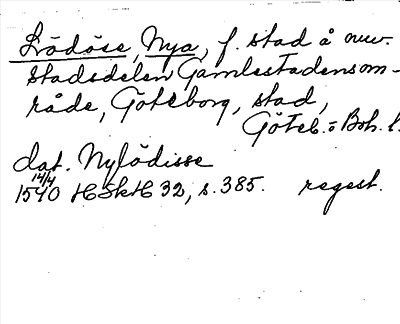 Lödöse, Nya, f. stad å nuv.
stadsdelen Gamlestadensom-
råde, Göteborg, stad,
Göteb. o Boh. l.
dat. Nylödisse
14/4
1540 HSkH 32, s. 385. regest.